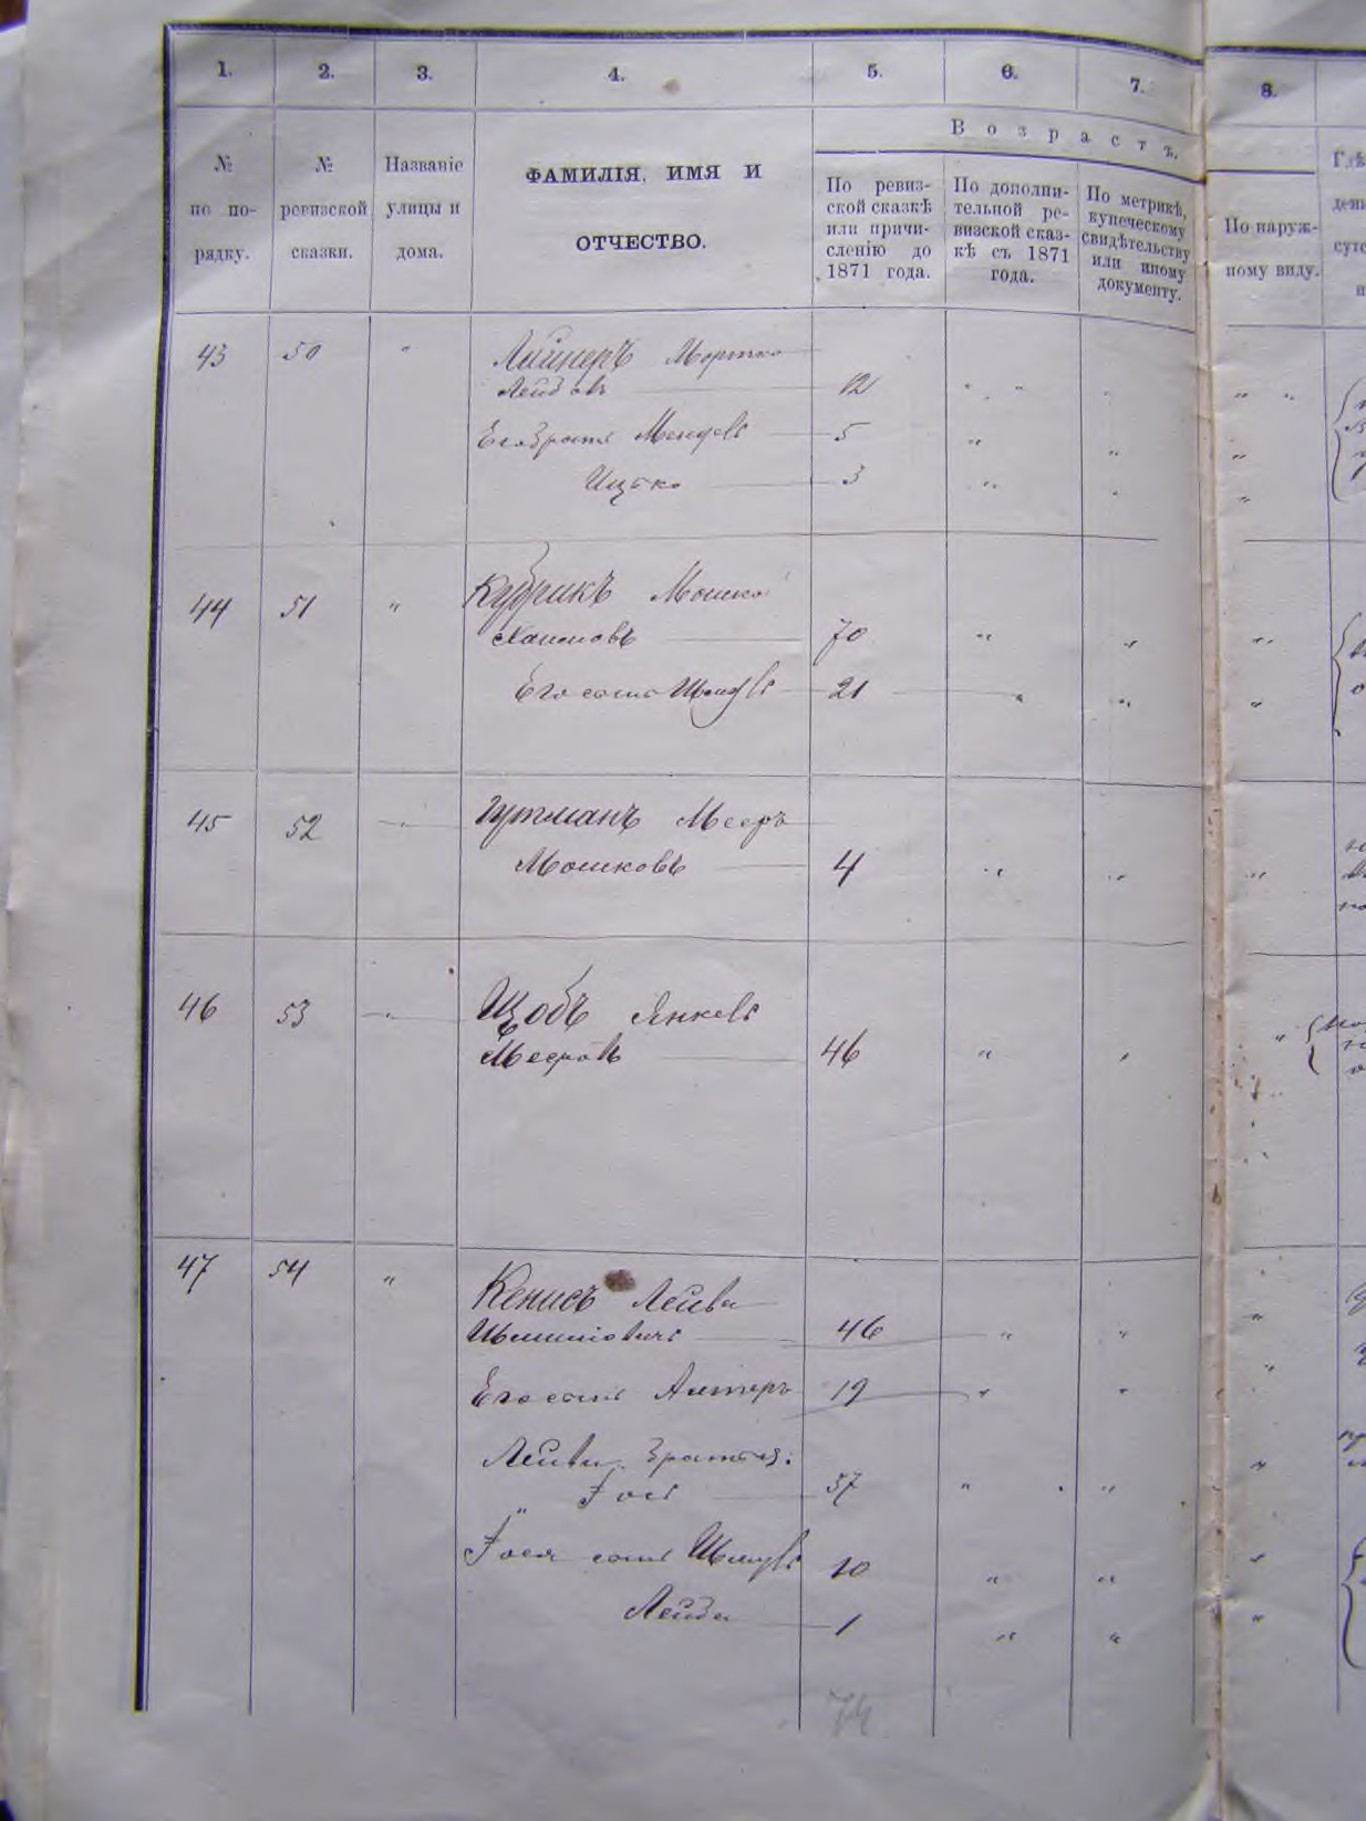 1. 2. 3. 4. 5. 6. 7. 8.
Возрастъ.
№ по по-рядку.
№ ревизской сказки.
Названіе улицы и дома.
ФАМИЛІЯ, ИМЯ И
ОТЧЕСТВО.
По ревиз-
ской сказкѣ
или причи-
сленію до
1871 года.
По дополни-
тельной ре-
визской сказ-
кѣ съ 1871
года.
По метрикѣ,
купеческому
свидѣтельству
или иному
документу.
По наруж-
ному виду.
43 50 " Лайнеръ Мортко
Лейбовъ 12 " " " " "
Его братья Мендель 5 " " "
Ицко 3 " " "
44 51 " Кубрикъ Мошко
Хаимовъ 70 " " "
Его сынъ Шмуль 21 " " "
45 52 " Гутманъ Мееръ
Мошковъ 4 " " "
46 53 " Щобъ Янкель
Мееровъ 46 " " "
47 54 " Кенисъ Лейба
46 " " "
Его сынъ Алтеръ 19 " " "
Лейбы братья:
Іось 37 " " "
Іося сынъ Шмуль 10 " " "
Лейба 1 " " "
74